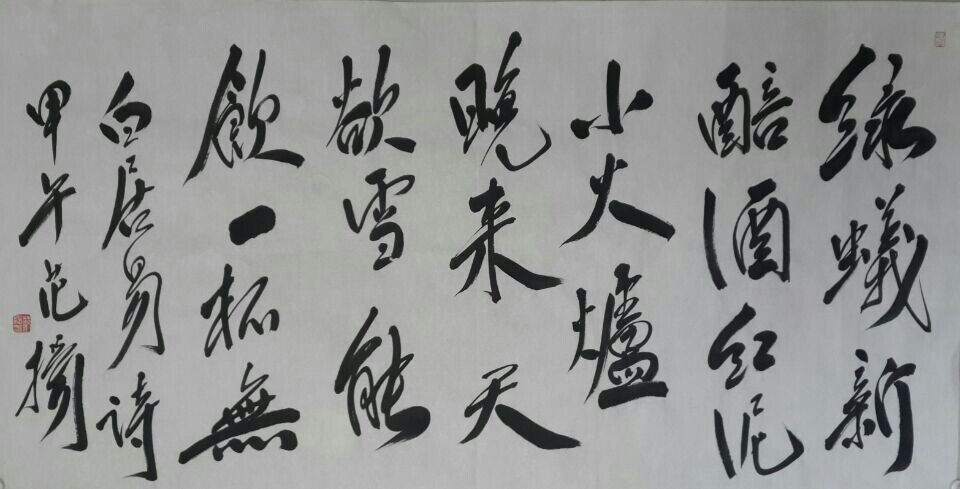 綠蟻新
醅酒紅泥
小火爐
晚來天
欲雪能
飲一杯無
白居易詩
甲午范